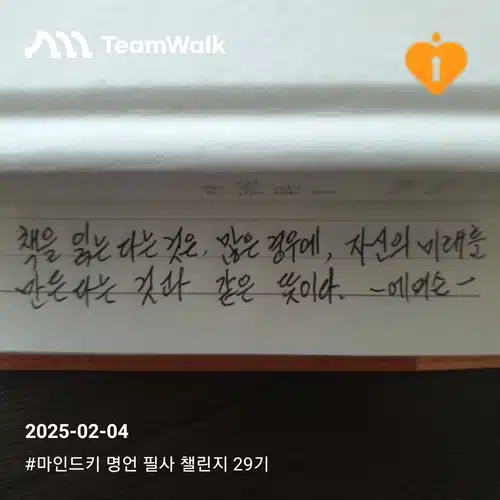 TeamWalk
책을 읽는 다는 것은, 많은 경우에, 자신의 미래를
만든다는 것과 같은 뜻이다. -에머슨-
2025-02-04
#마인드키 명언 필사 챌린지 29기